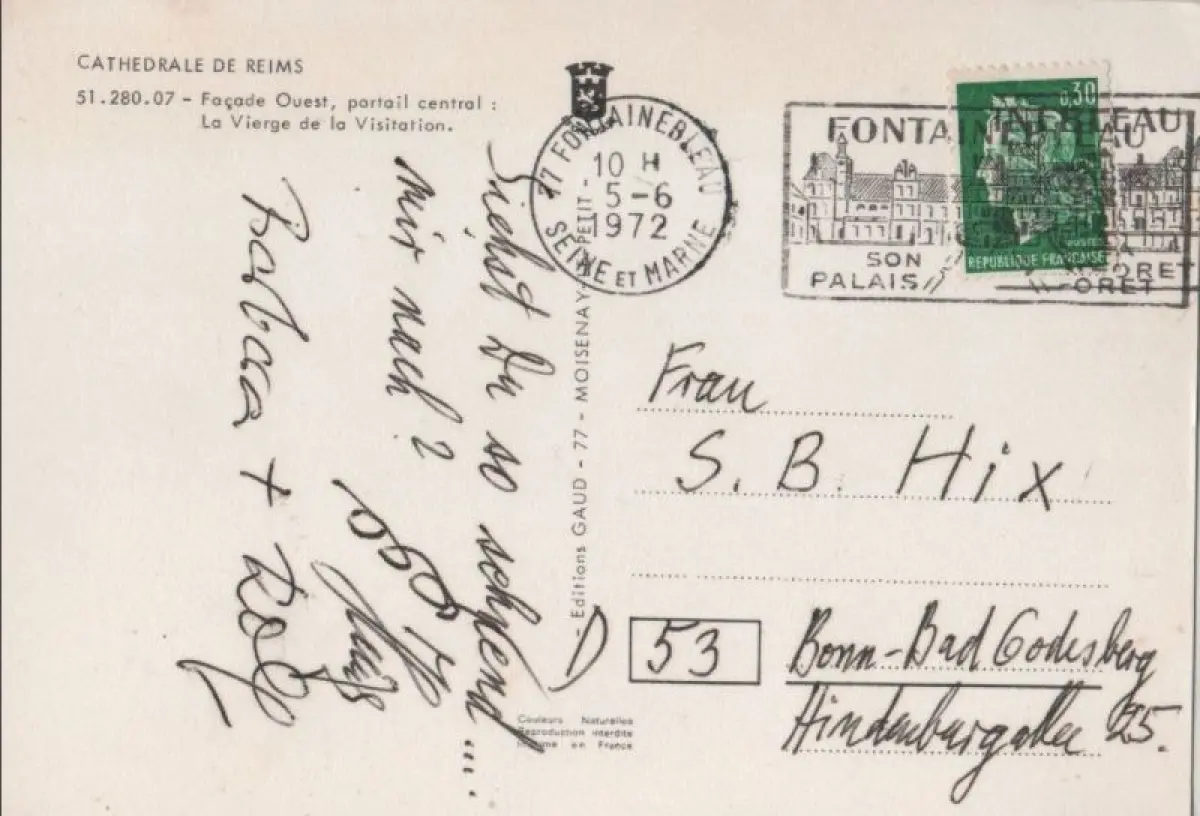 CATHEDRALE DE REIMS
51.280.07 - Façade Ouest, portail central :
La Vierge de la Visitation.
Siehst Du so sehend ....
mir nach ?
Barbara + Rolf
77 FONTAINEBLEAU
10 H
5-6
1972
SEINE ET MARNE
FONTAINEBLEAU
SON
PALAIS
FORET
0,30
POSTES
REPUBLIQUE FRANÇAISE
- Editions GAUD - 77 - MOISENAY-PETIT -
Frau
S. B. Hix
D 53 Bonn-Bad Godesberg
Hindenburgallee 25.
Couleurs Naturelles
Reproduction interdite
Imprimé en France